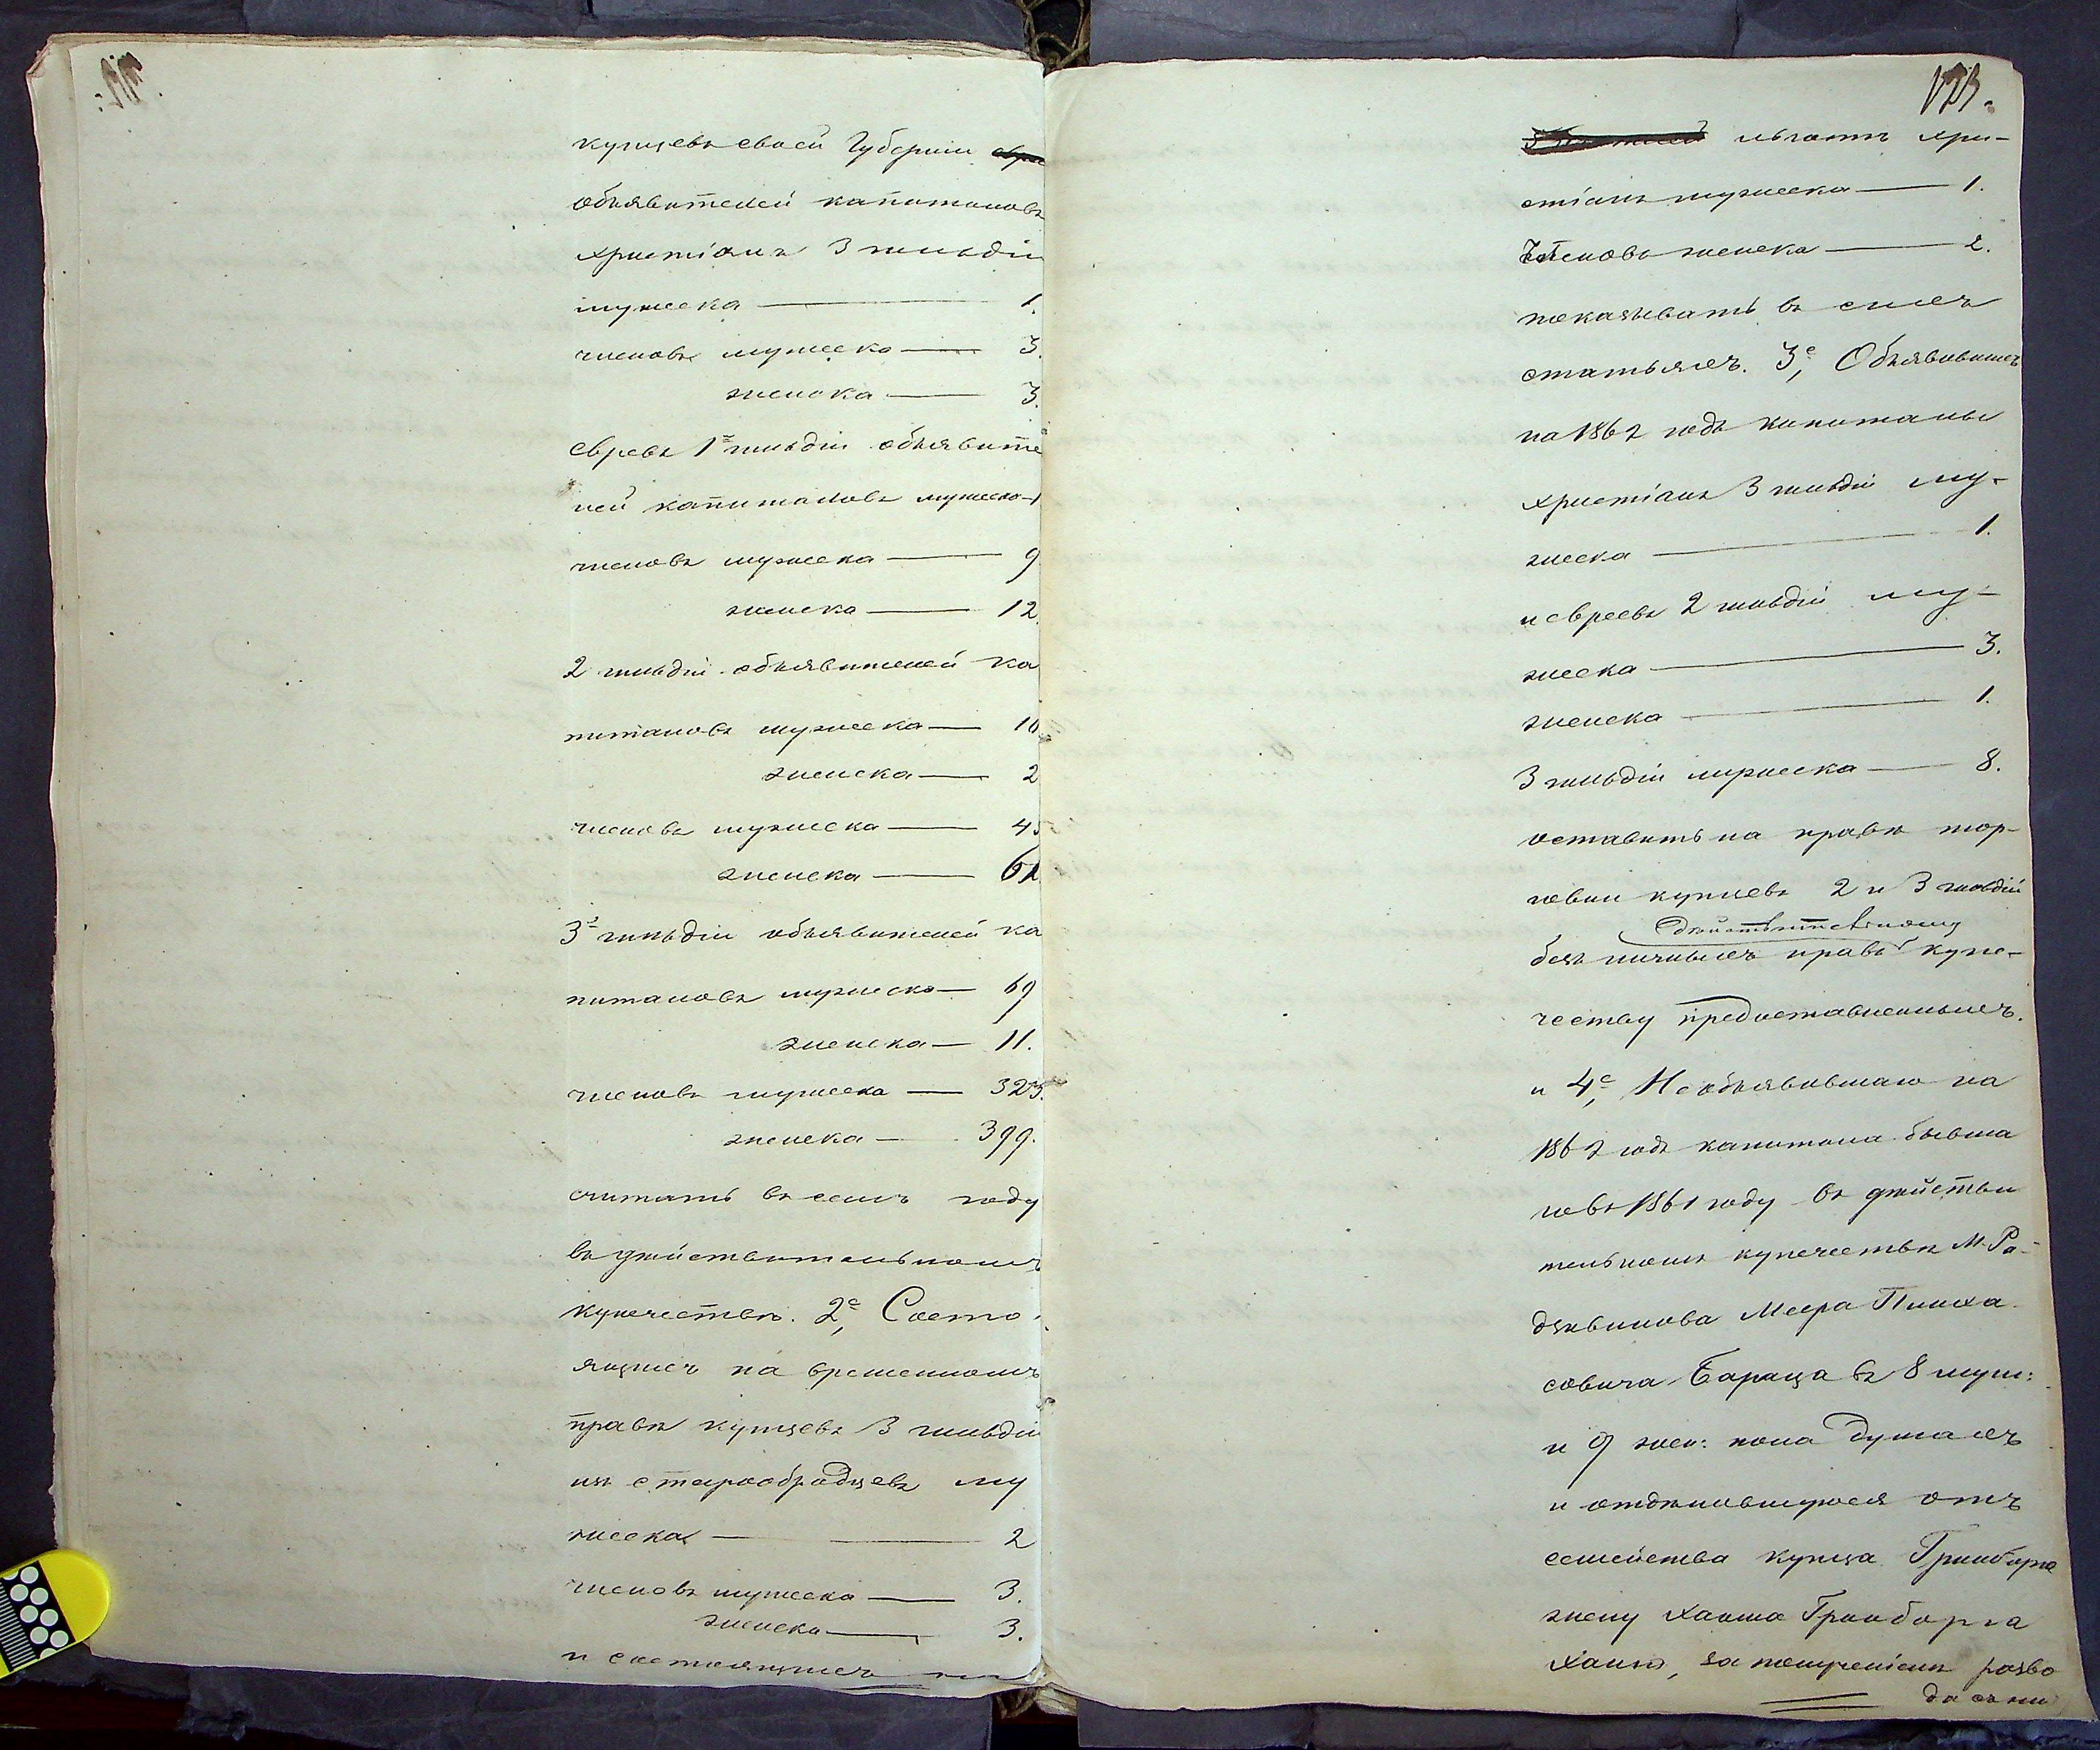 купцевъ своей Губерніи
объявителей капиталовъ
христіанъ 3 гильдіи
мужеска — 1.
членовъ мужеска — 3.
женска — 3.
евреевъ 1й гильдіи объявите
лей капиталовъ мужеска — 1
членовъ мужеска — 9
женска — 12.
2 гильдіи объявителей ка
питаловъ мужеска — 10
женска — 2
членовъ мужеска — 45
женска — 62
3й гильдіи объявителей ка
питаловъ мужеска — 69
женска — 11.
членовъ мужеска — 325.
женска — 399.
считать въ семъ году
въ дѣйствительномъ
купечествѣ. 2е, Состо
ящихъ на временномъ
правѣ купцевъ 3 гильдіи
изъ старообрядцевъ му
жеска — 2
членовъ мужеска — 3.
женска — 3.
и состоящихъ на
123.
льготѣ хри-
стіанъ мужеска — 1.
Членовъ женска — 2.
показывать въ сихъ
статьяхъ. 3е, Объявившихъ
на 1862 годъ капиталы
христіанъ 3 гильдіи му-
жеска — 1.
и евреевъ 2 гильдіи му-
жеска — 3.
женска — 1.
3 гильдіи мужеска — 8.
оставить на правѣ тор-
говли купцевъ 2 и 3 гильдій
дѣйствительному
безъ личныхъ правъ купе-
честву предоставленныхъ.
и 4е, Необъявившаго на
1862 годъ капитала бывша
го въ 1861 году въ дѣйстви
тельномъ купечествѣ М. Ра-
дзивилова Меера Пинха
совича Бараца въ 8 муж:
и 9 жен: пола душахъ
и отдѣлившуюся отъ
семейства купца Гринберга
жену Хаима Гринберга
Хаю, за
да съ ни